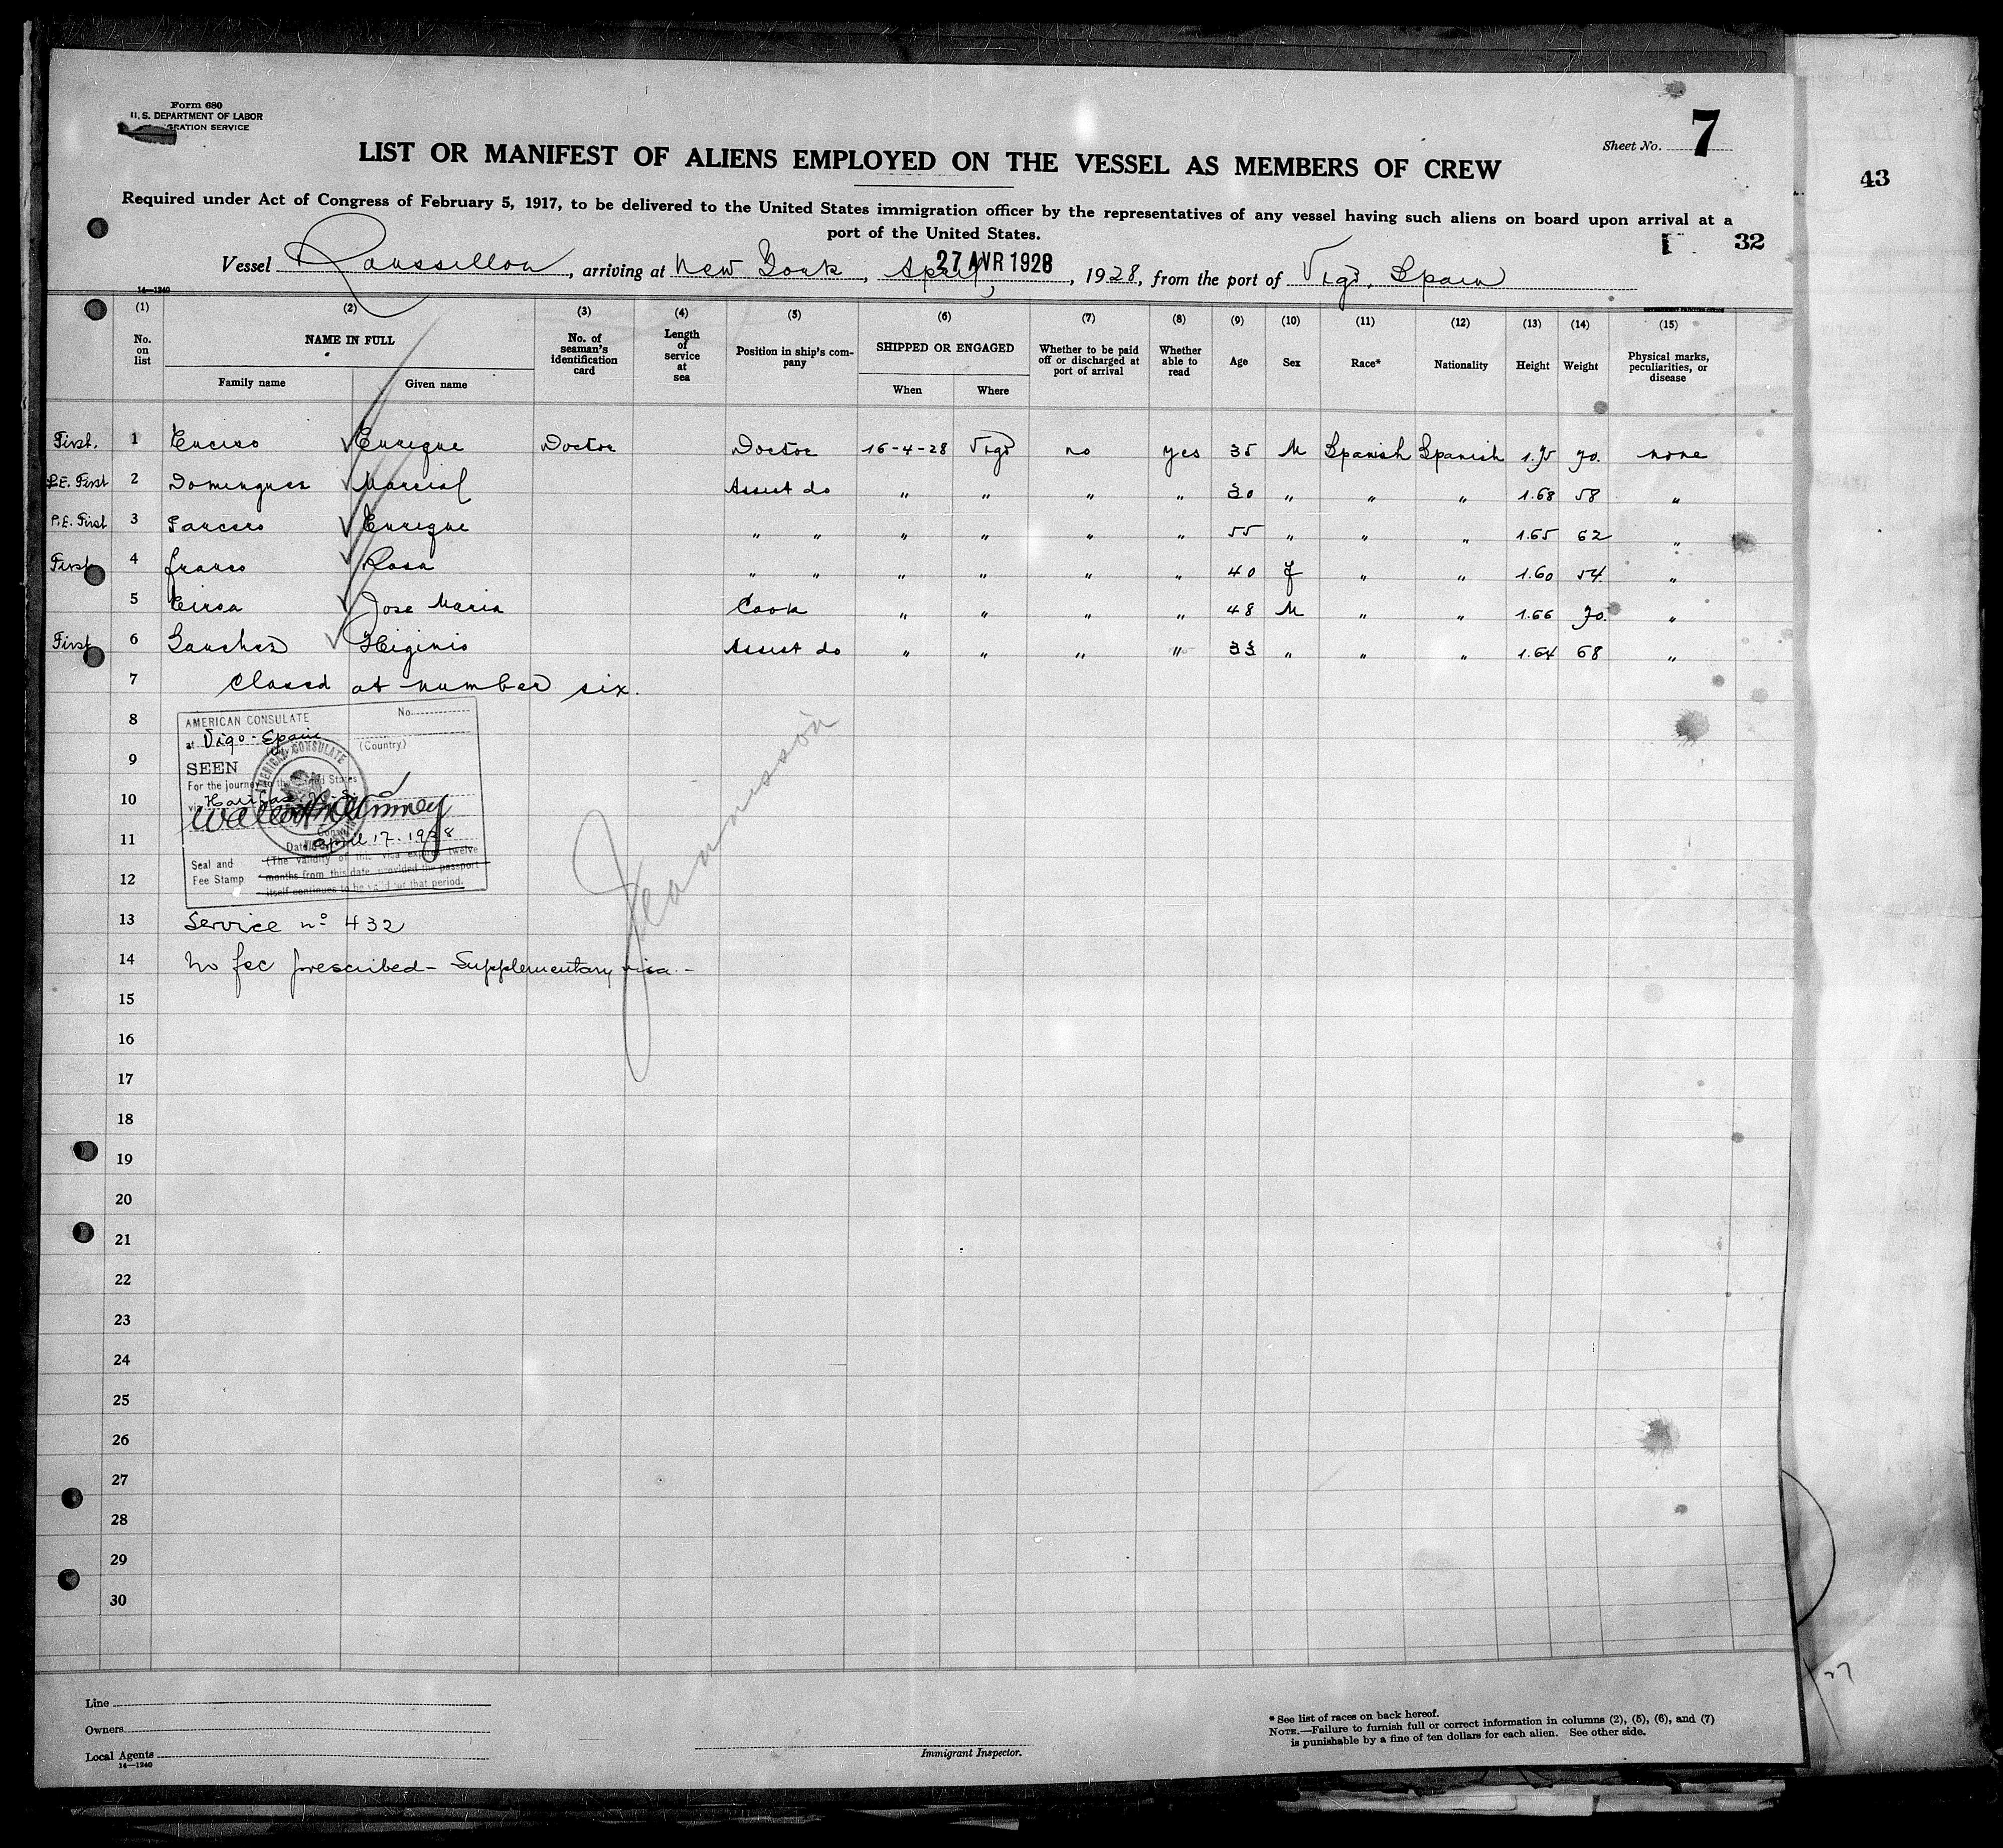 Form 680
U. S. DEPARTMENT OF LABOR
GRATION SERVICE
Sheet No. 7
43
LIST OR MANIFEST OF ALIENS EMPLOYED ON THE VESSEL AS MEMBERS OF CREW
Required under Act of Congress of February 5, 1917, to be delivered to the United States immigration officer by the representatives of any vessel having such aliens on board upon arrival at a
port of the United States.
32
Vessel Roussillon, arriving at New York, April, 27 AVR 1928, 1928, from the port of Vigo, Spain
14—1240
(1) (2) (3) (4) (5) (6) (7) (8) (9) (10) (11) (12) (13) (14) (15)
No. on list NAME IN FULL No. of seaman's identification card Length of service at sea Position in ship's company SHIPPED OR ENGAGED Whether to be paid off or discharged at port of arrival Whether able to read Age Sex Race* Nationality Height Weight Physical marks, peculiarities, or disease
Family name Given name When Where
First. 1 Enciso Enrique Doctor Doctor 16-4-28 Vigo no yes 35 M Spanish Spanish 1.75 70. none
P.E. First 2 Dominguez Marcial Assist do " " " " 30 " " " 1.68 58 "
P.E. First 3 Enrique " " " " " " 55 " " " 1.65 62 "
First 4 franco Rosa " " " " " " 40 f " " 1.60 54 "
5 Eiroa Jose Maria Cook " " " " 48 M " " 1.66 70. "
First 6 Sanchez Higinio Assist do " " " " 33 " " " 1.64 68 "
7 Closed at number six.
8
AMERICAN CONSULATE No.
at Vigo - Spain
(Country)
9
SEEN
For the journey to the United States
10
via
11
Date April 17. 1928
Seal and Fee Stamp
(The validity of this visa expires twelve
12
months from this date provided the passport
itself continues to be valid for that period.
AMERICAN CONSULATE
13 Service nº 432
14 No fee prescribed - Supplementary visa. -
Jeannesson
15
16
17
18
19
20
21
22
23
24
25
26
27
28
29
30
27
Line
Owners
Local Agents
14—1240
Immigrant Inspector.
* See list of races on back hereof.
NOTE.—Failure to furnish full or correct information in columns (2), (5), (6), and (7)
is punishable by a fine of ten dollars for each alien. See other side.